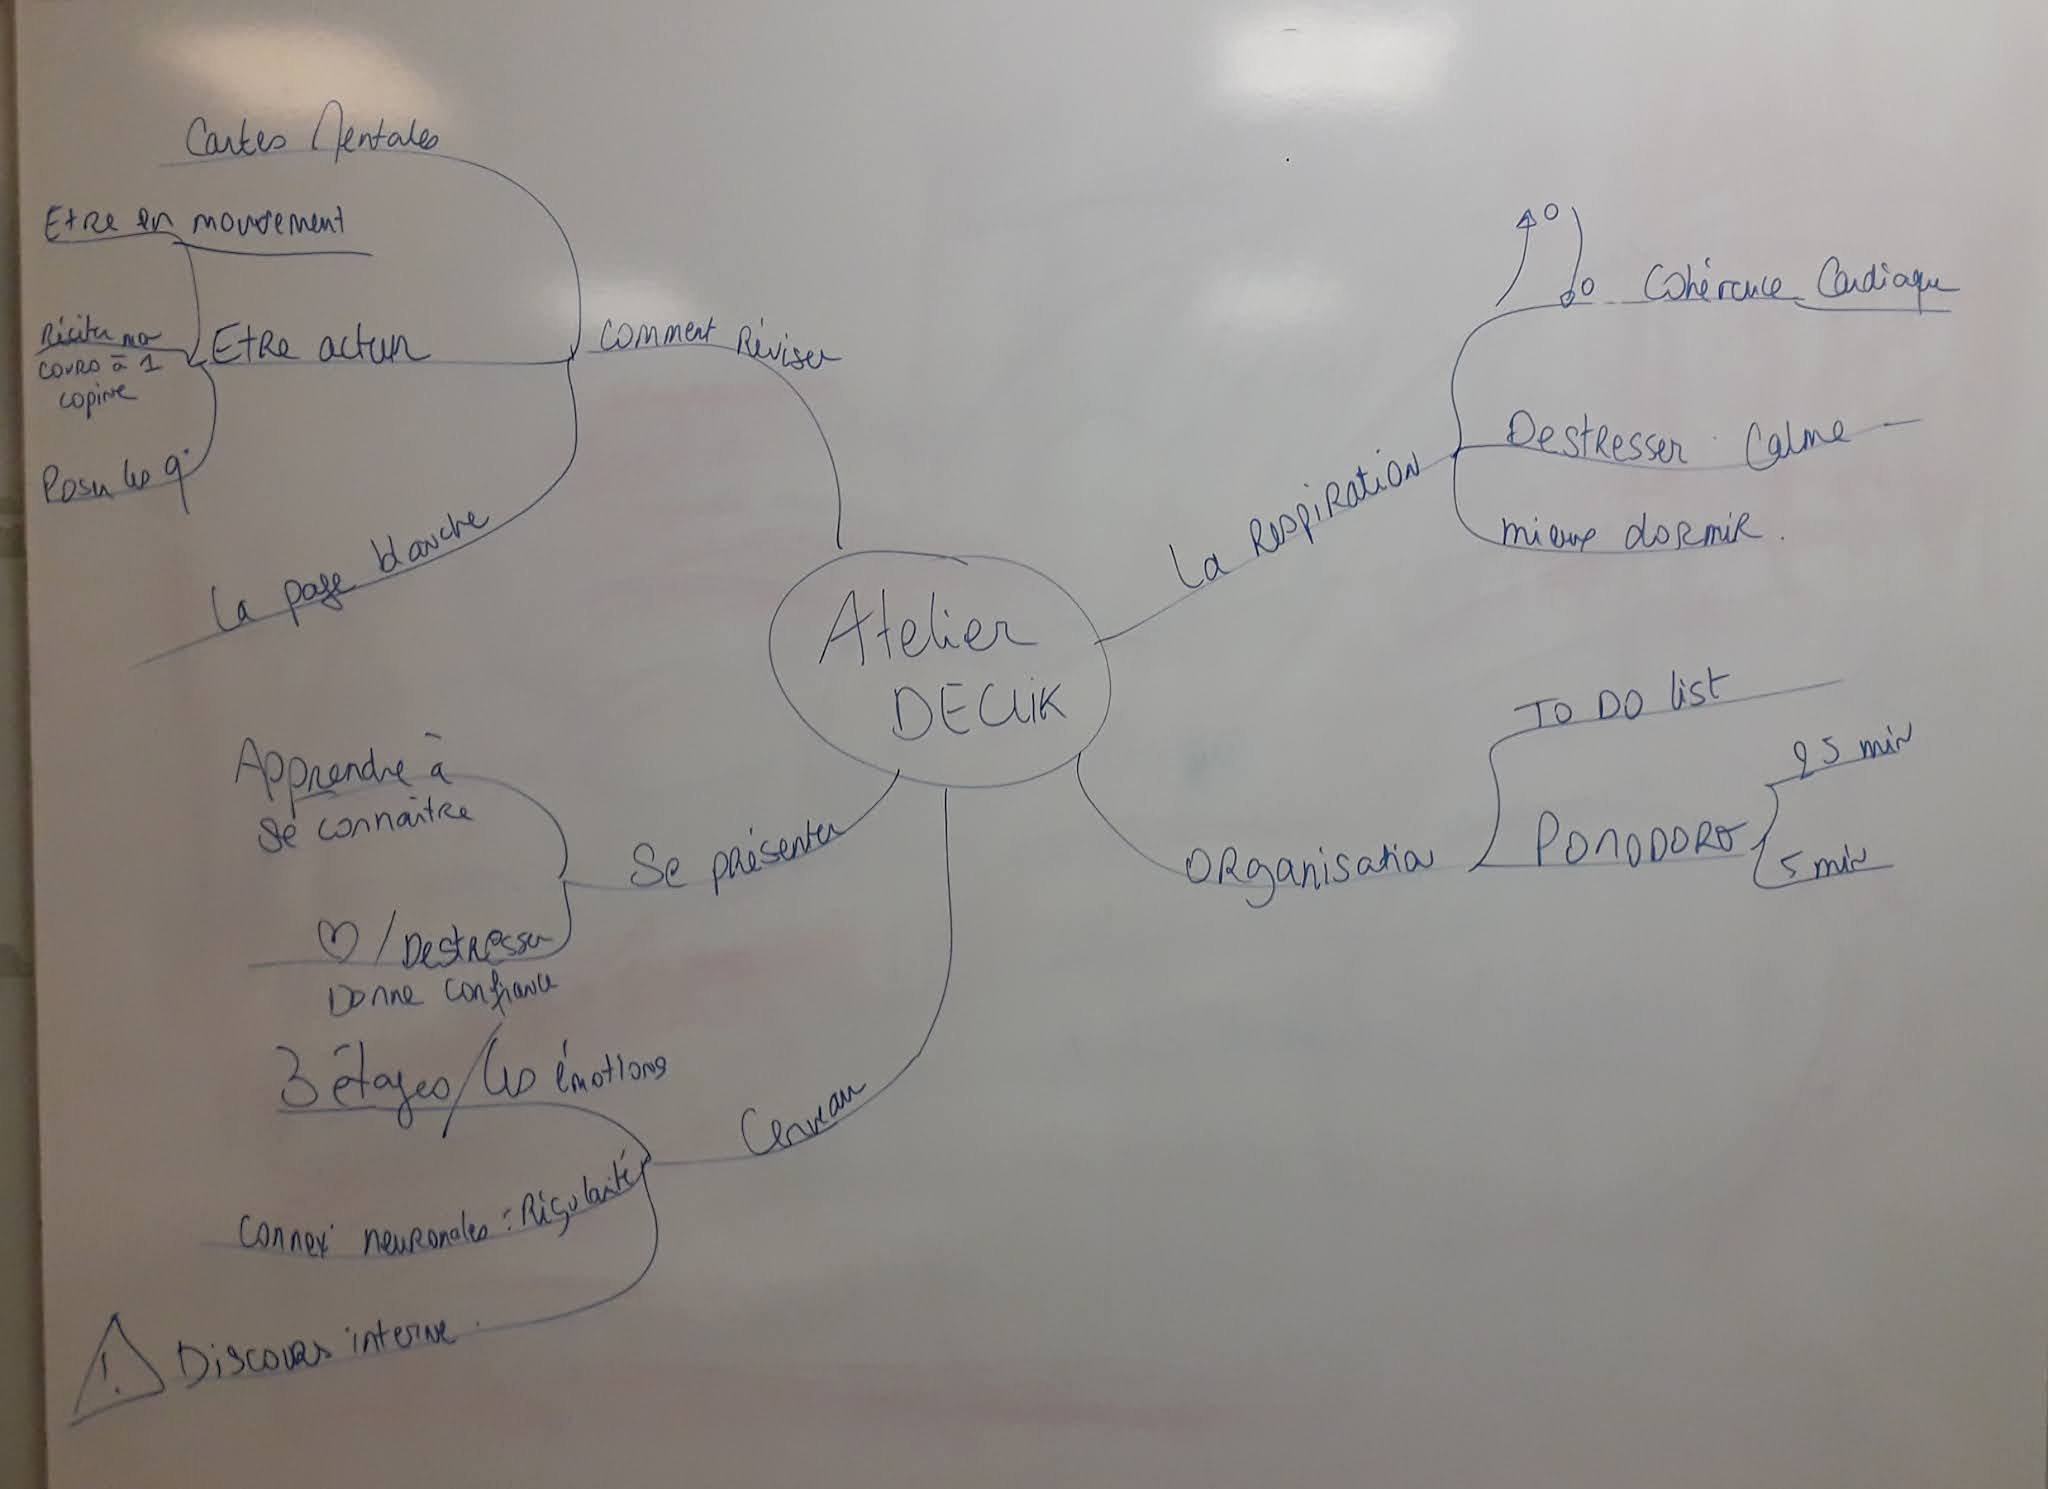 Cartes Mentales
Etre en mouvement
Réciter mo
cours à 1
copine
Etre acteur
Poser les q°
La page blanche
Comment Réviser
Cohérence Cardiaque
Destresser. Calme
mieux dormir.
La Respiration
Atelier
DECLIK
To Do list
Pomodoro
25 min
5 min
Organisation
Apprendre à
se connaître
Se présenter
♡/Destresser
Donne confiance
3 étages/Les émotions
Cerveau
Connex° neuronales : Régularité
! Discours interne